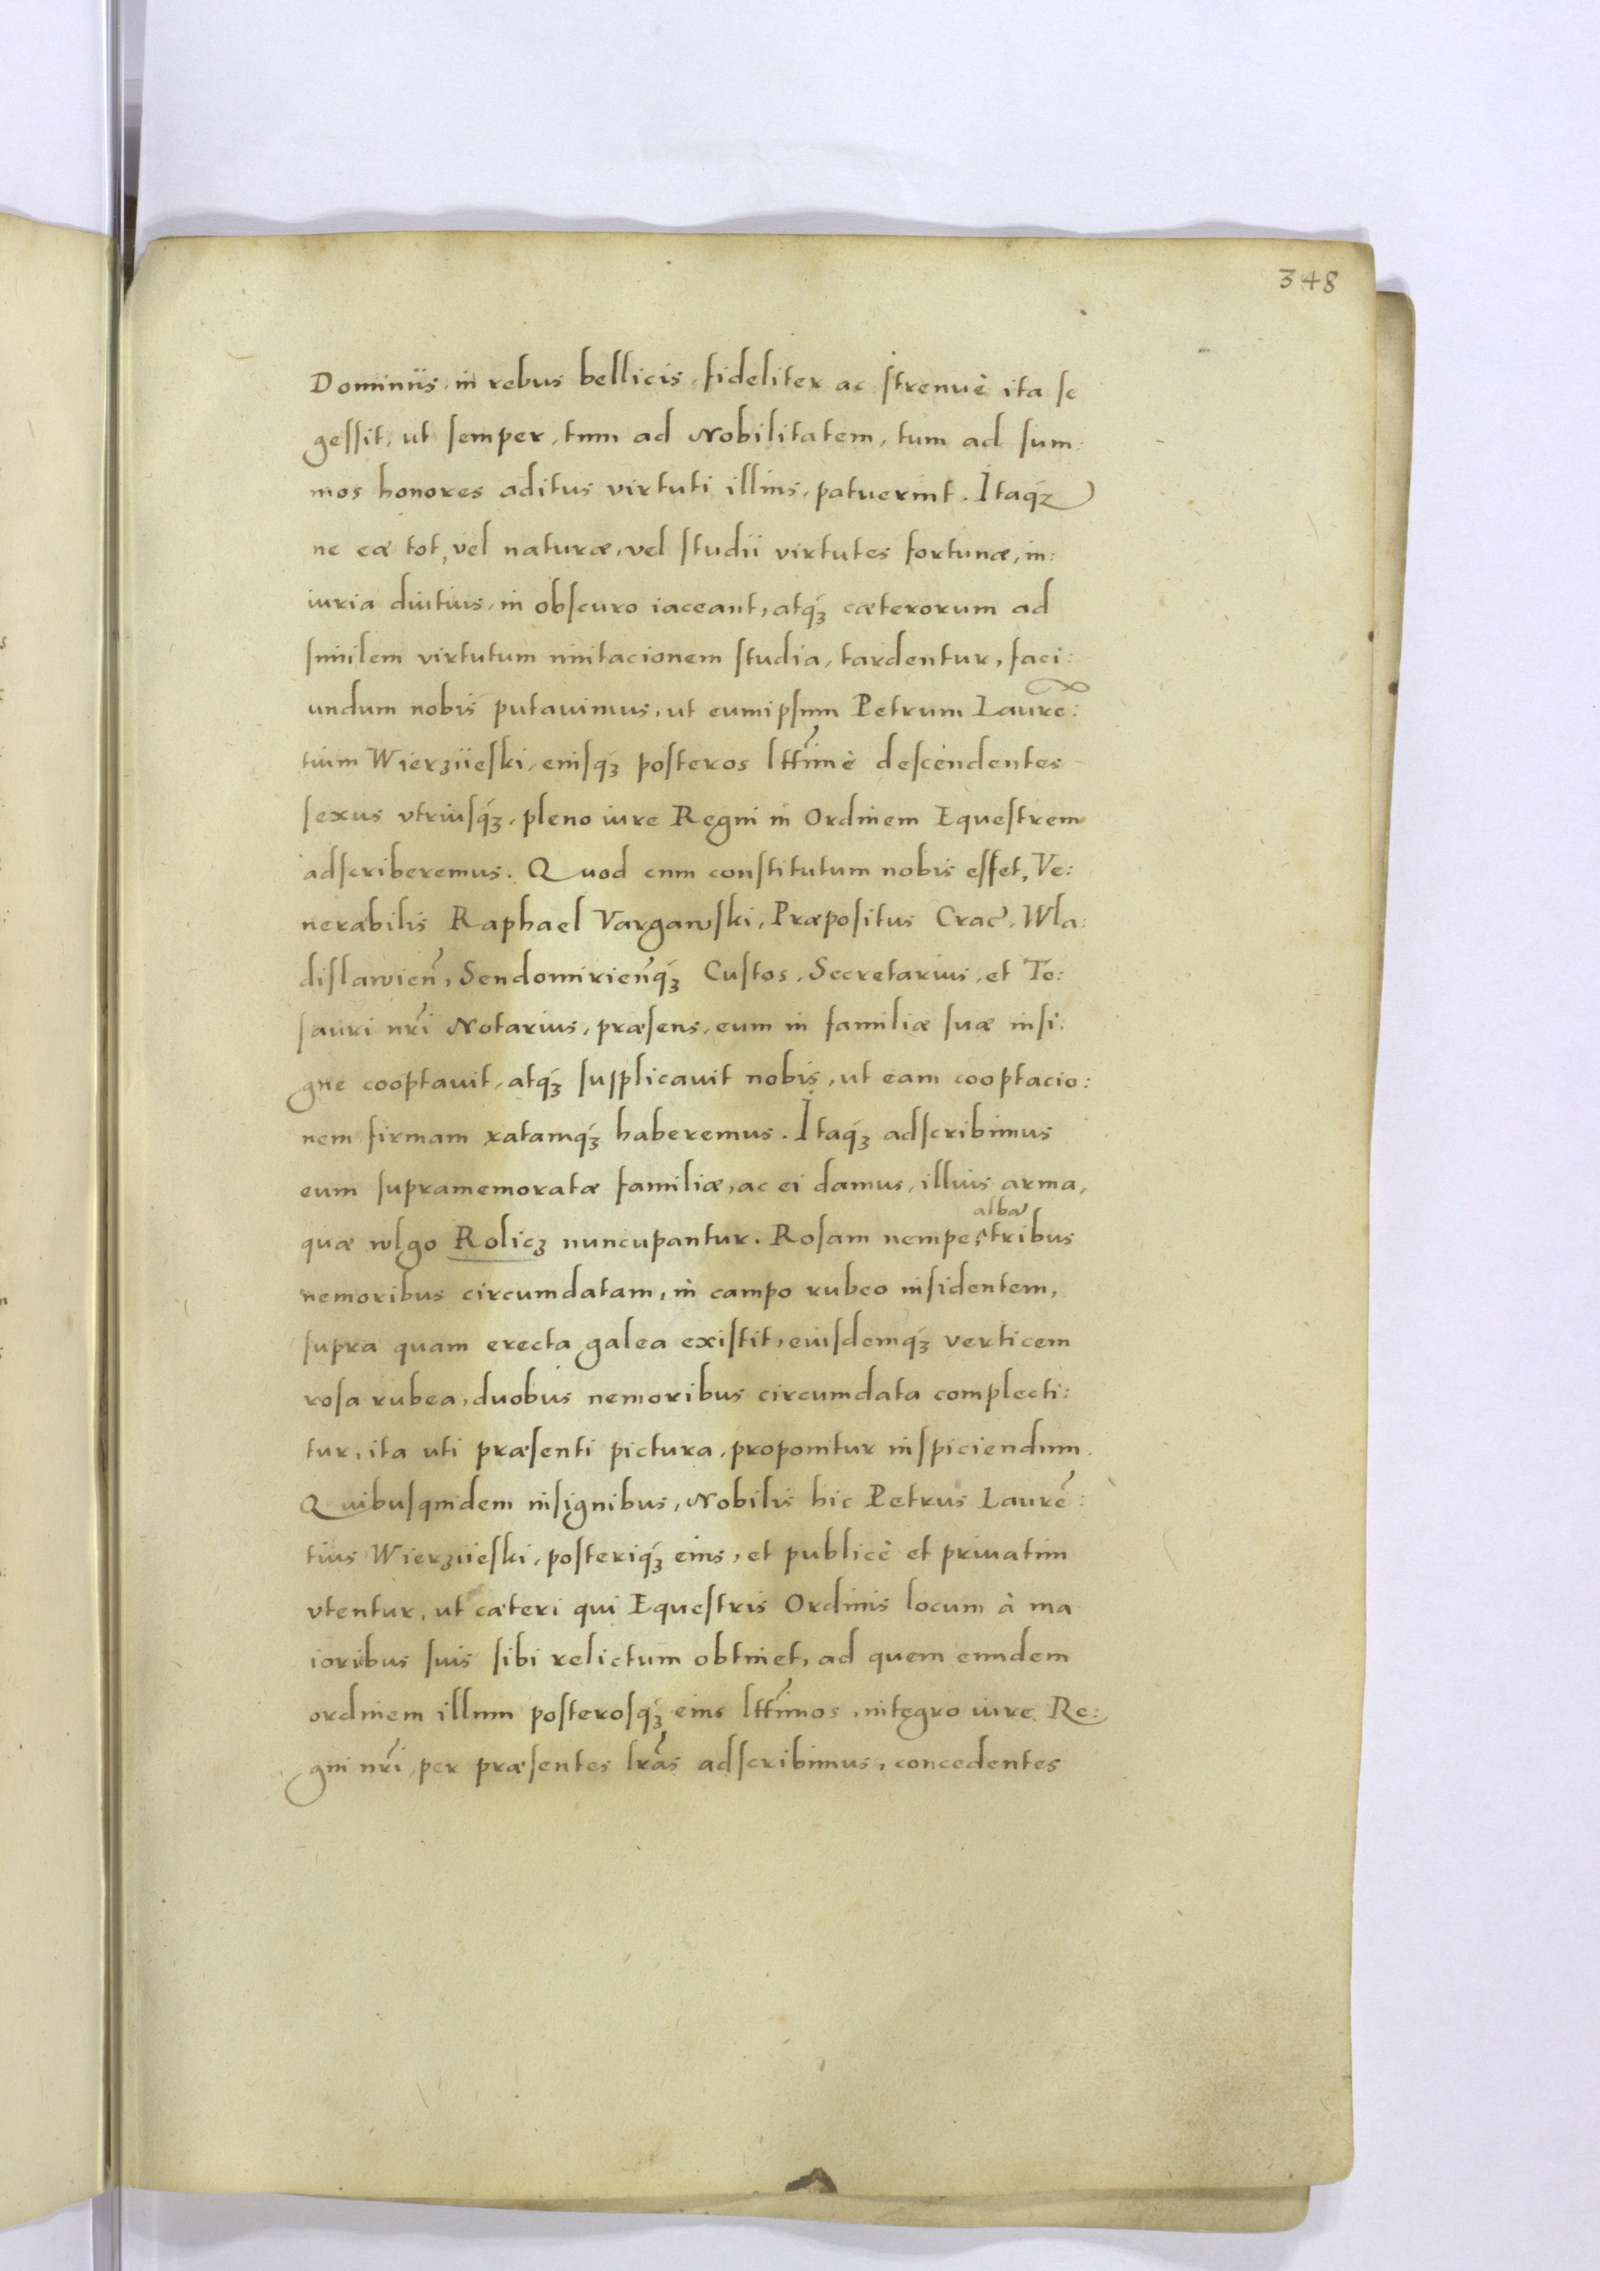 348
Dominiis, in rebus bellicis, fideliter ac strenuè ita se
gessit, ut semper, tum ad Nobilitatem, tum ad sum:
mos honores aditus virtuti illius, patuerint. Itaq́ꝫ
ne eæ tot, vel naturæ, vel studii virtutes fortunæ, in:
iuria diutius, in obscuro iaceant, atq́ꝫ cæterorum ad
similem virtutum imitacionem studia, tardentur, faci:
undum nobis putauimus, ut eumipsum Petrum Laurẽ:
tium Wierzÿeski, eiusq́ꝫ posteros lttimè descendentes
sexus vtriusq́ꝫ, pleno iure Regni in Ordinem Equestrem
adscriberemus. Quod cum constitutum nobis esset, Ve:
nerabilis Raphael Vargawski, Præpositus Crac̃, Wla:
dislawieñ, Sendomirieñq́ꝫ Custos, Secretarius, et Te:
sauri nr̃i Notarius, præsens, eum in familiæ suæ insi:
gne cooptauit, atq́ꝫ supplicauit nobis, ut eam cooptacio:
nem firmam ratamq́ꝫ haberemus. Itaq́ꝫ adscribimus
eum supramemoratæ familiæ, ac ei damus, illius arma,
alba
quæ wlgo Rolicz nuncupantur. Rosam nempe, tribus
nemoribus circumdatam, in campo rubeo insidentem,
supra quam erecta galea existit, eiusdemq́ꝫ verticem
rosa rubea, duobus nemoribus circumdata complecti:
tur, ita uti præsenti pictura, proponitur inspiciendum.
Quibusquidem insignibus, Nobilis hic Petrus Laurẽ:
tius Wierzÿeski, posteriq́ꝫ eius, et publicè et priuatim
vtentur, ut cæteri qui Equestris Ordinis locum à ma
ioribus suis sibi relictum obtinet, ad quem eundem
ordinem illum posterosq́ꝫ eius lttimos, integro iure Re:
gni nr̃i, per præsentes lr̃as adscribimus, concedentes